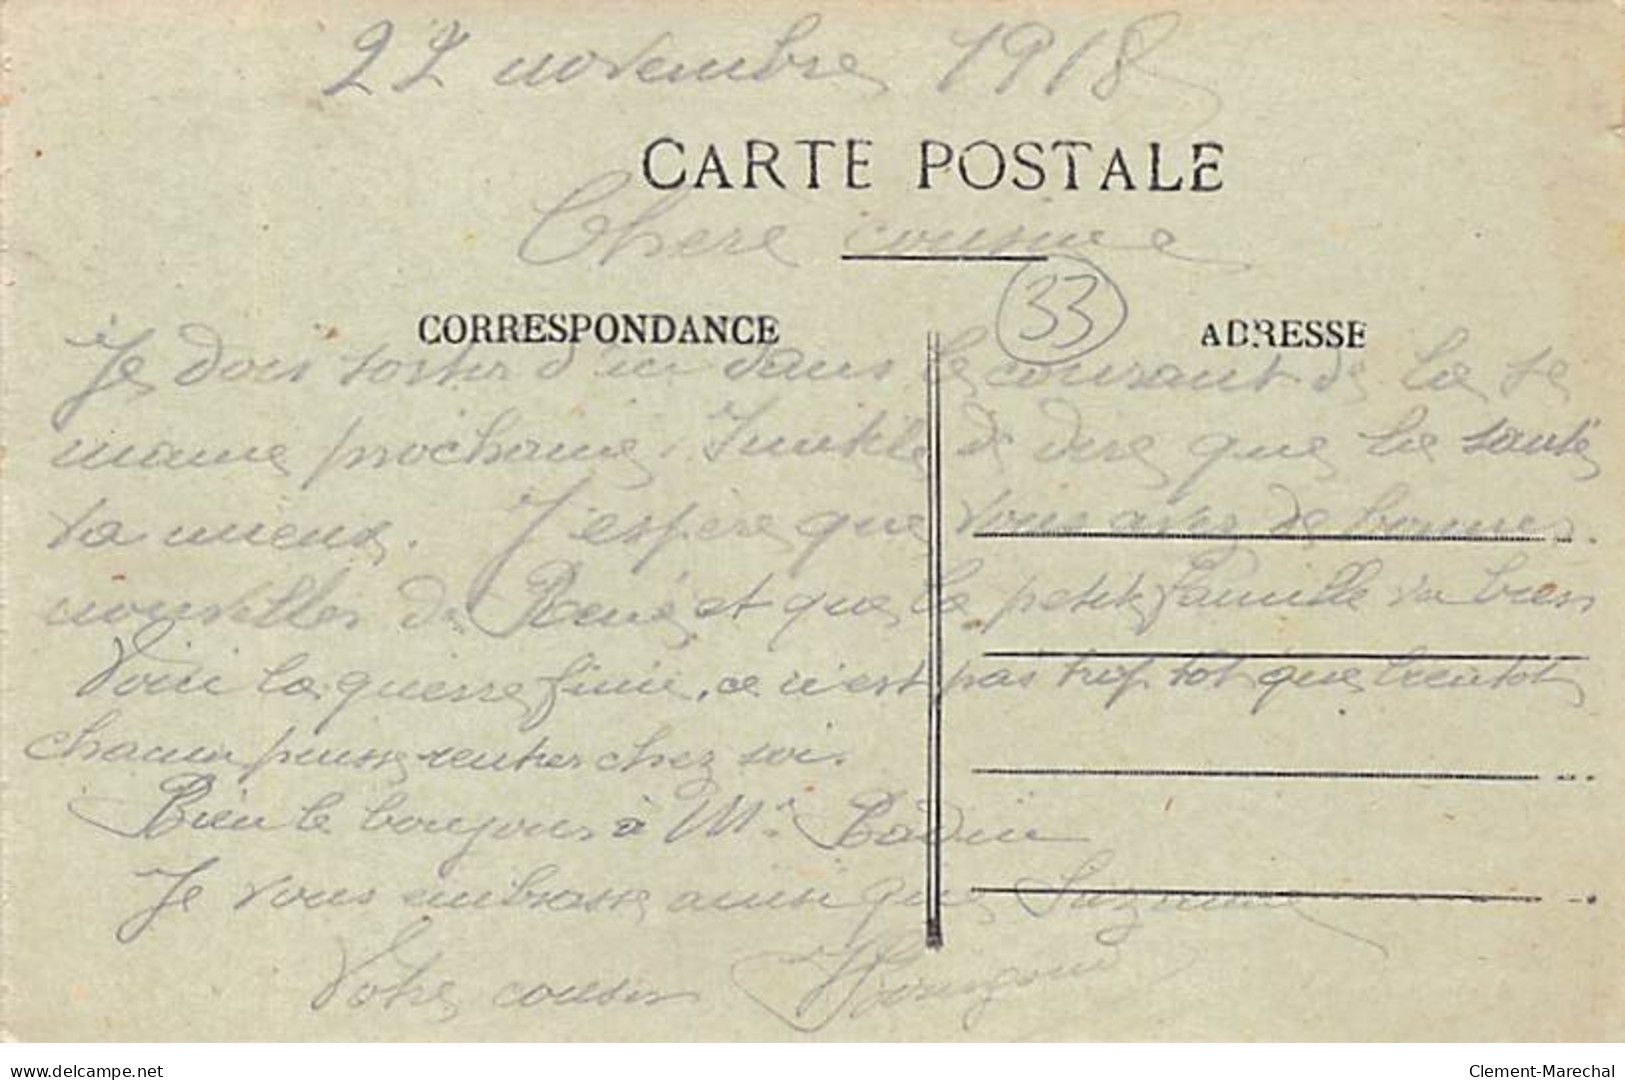 22 novembre 1918
CARTE POSTALE
Chere cousine
33
CORRESPONDANCE
ADRESSE
Je dois sortir d'ici dans le courant de la se
maine prochaine. Inutile de dire que la santé
va mieux. J'espère que vous avez de bonnes
nouvelles de René et que la petite famille va bien
Voici la guerre finie, ce n'est pas trop tot que bientot
chacun puisse rentrer chez soi.
Bien le bonjour à Mr
Je vous embrasse ainsi que Suzanne
Votre cousin
delcampe.net
Clement-Marechal